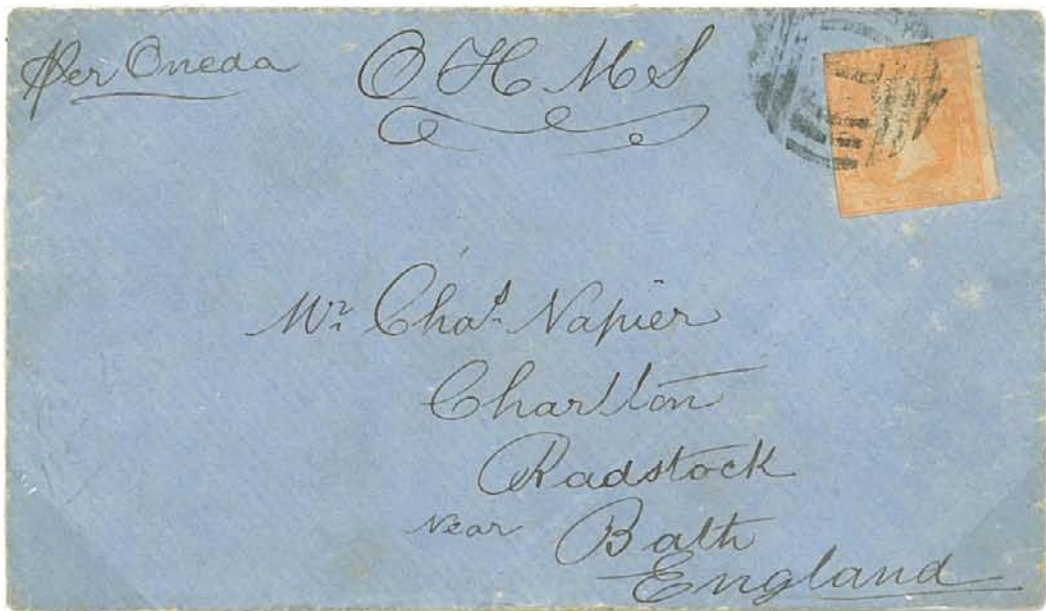 Per Oneda
O H M S
Mr. Chas. Napier
Charlton
Radstock
Near Bath
England